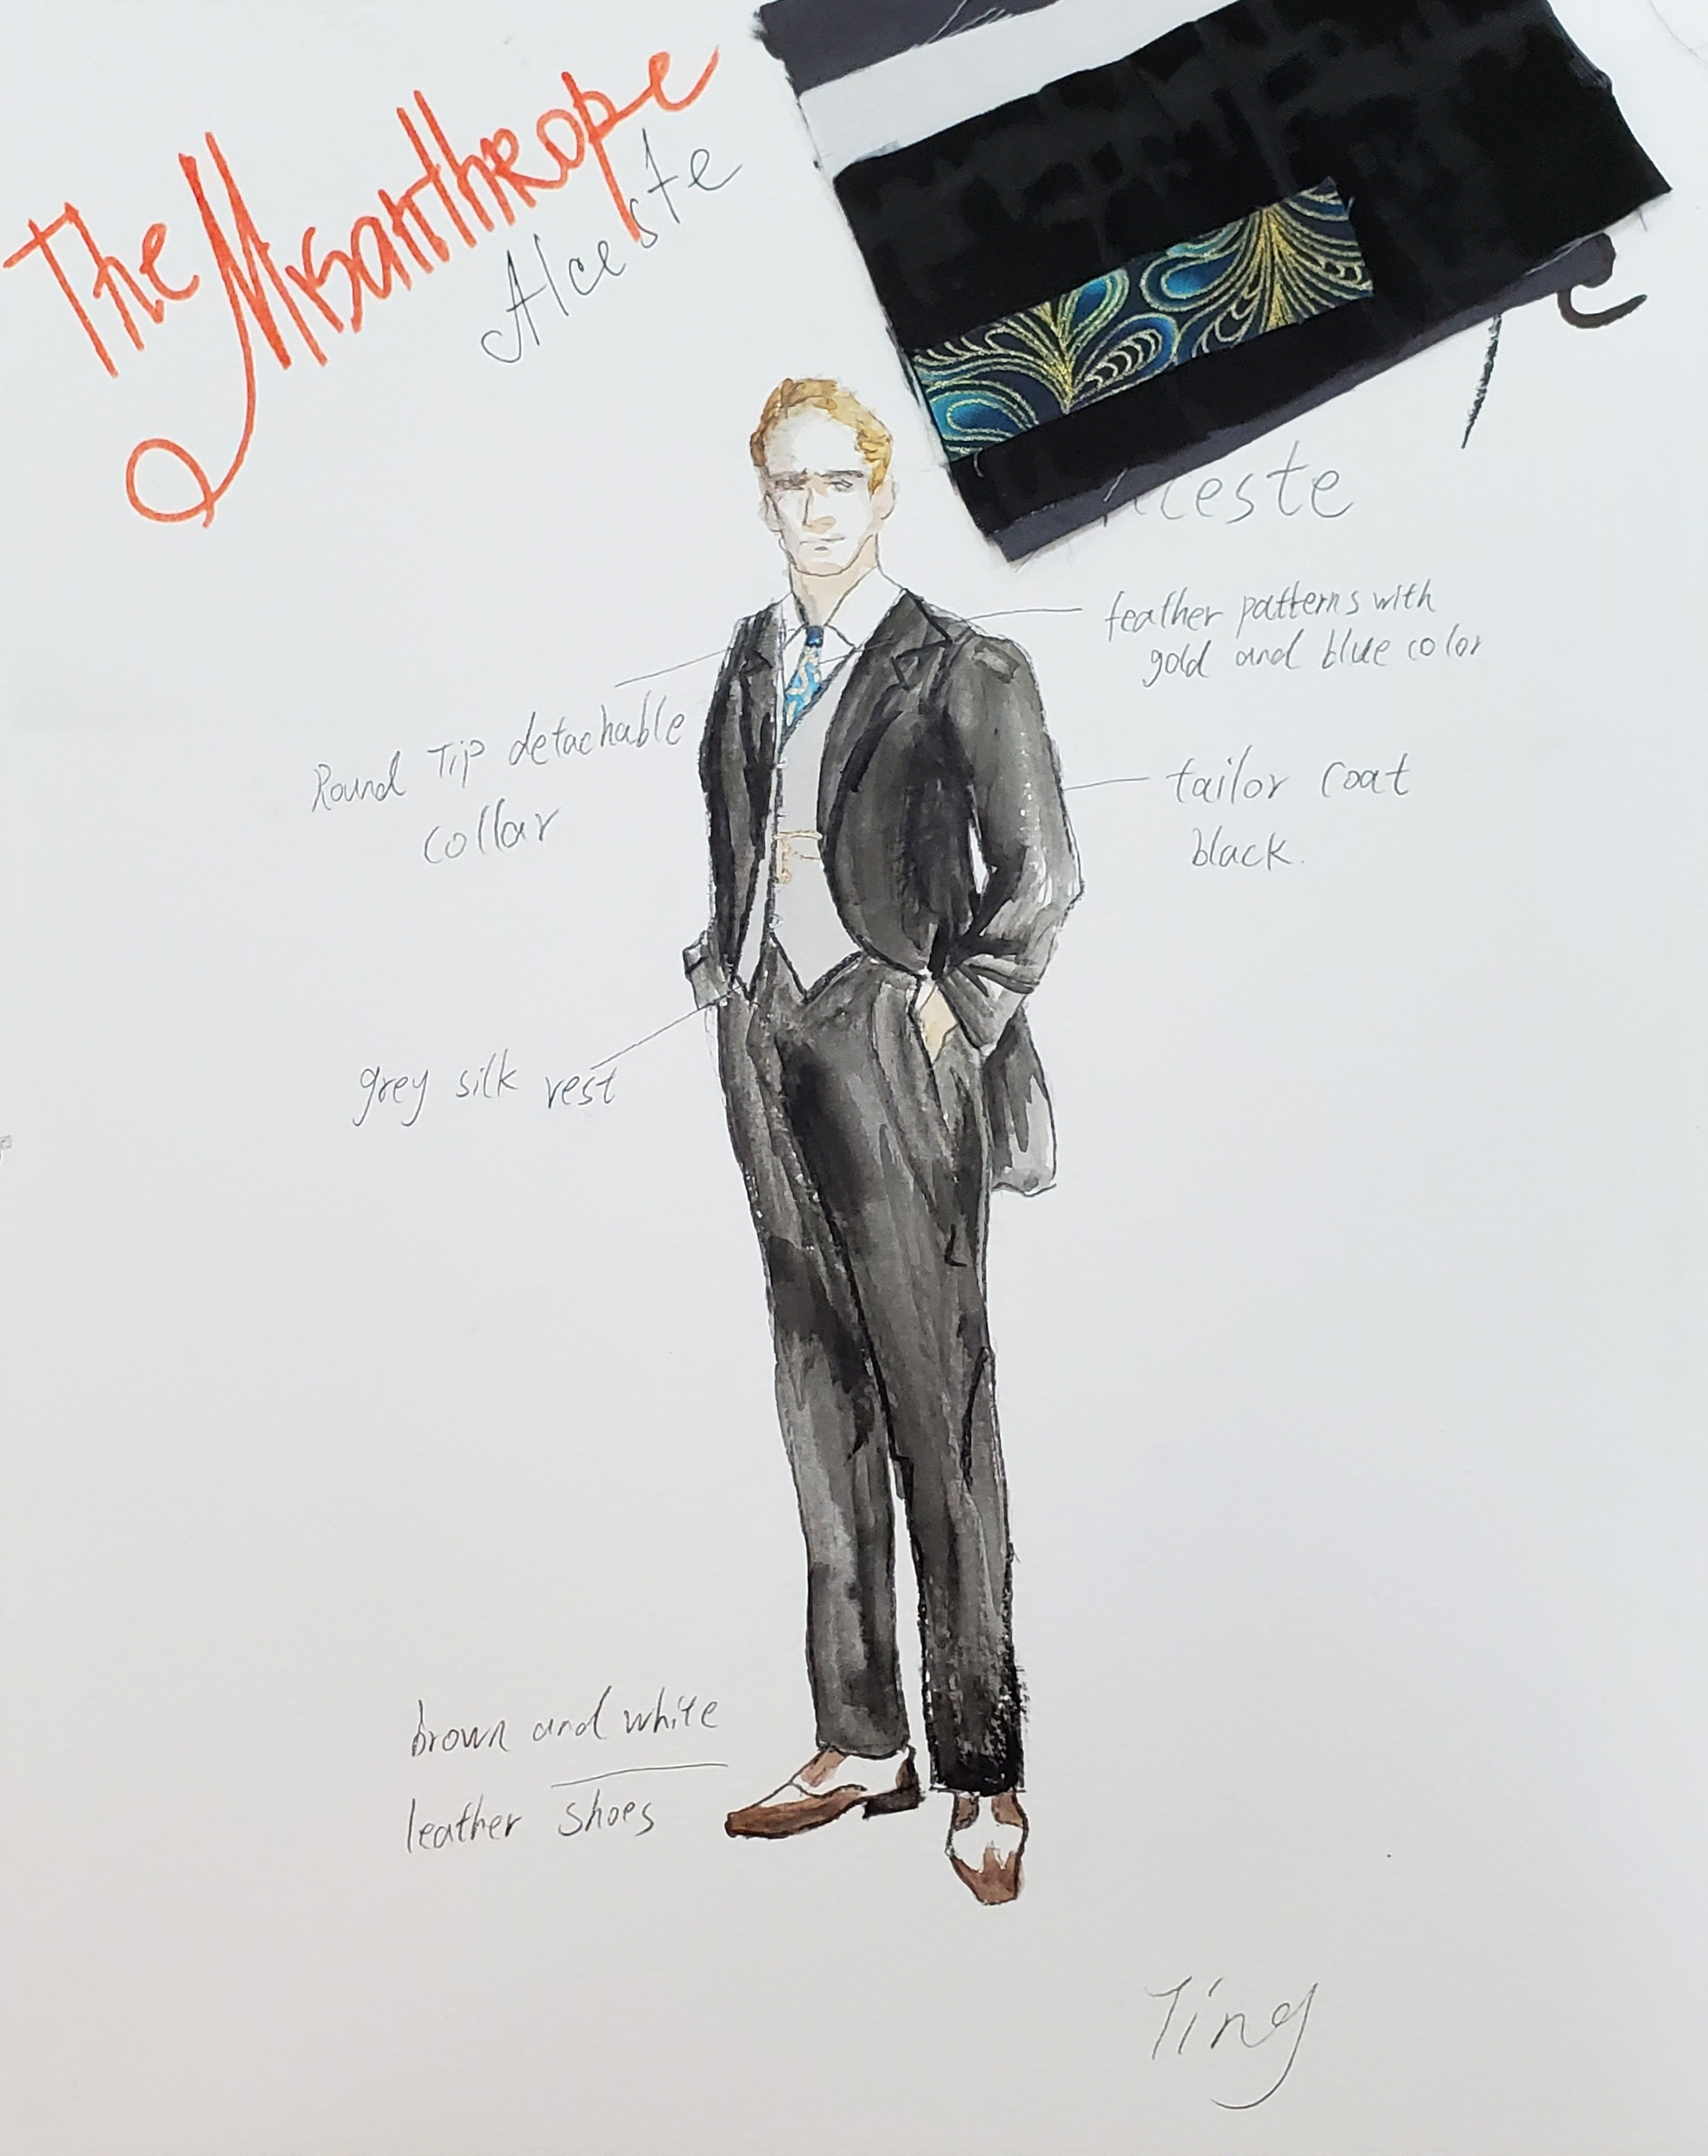 The Misanthrope
Alceste
feather patterns with
gold and blue color
Round Tip detachable
collar
tailor coat
black.
grey silk vest
brown and white
leather shoes
Ting